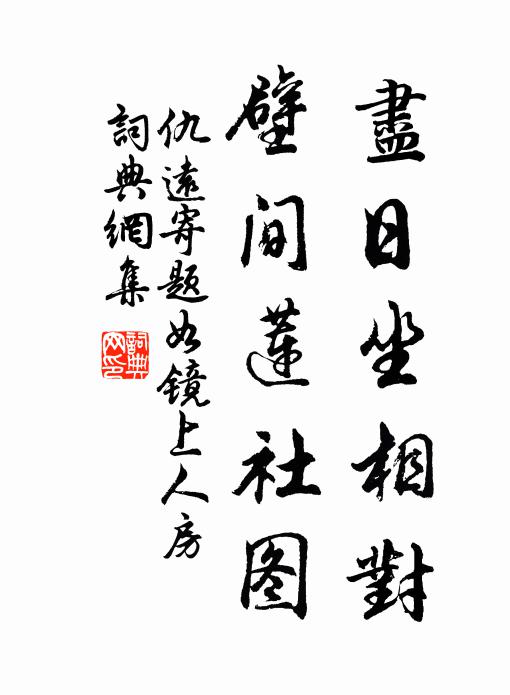 盡日坐相對
壁间蓮社图
仇遠寄題如鏡上人房
詞典網集
詞典
网印